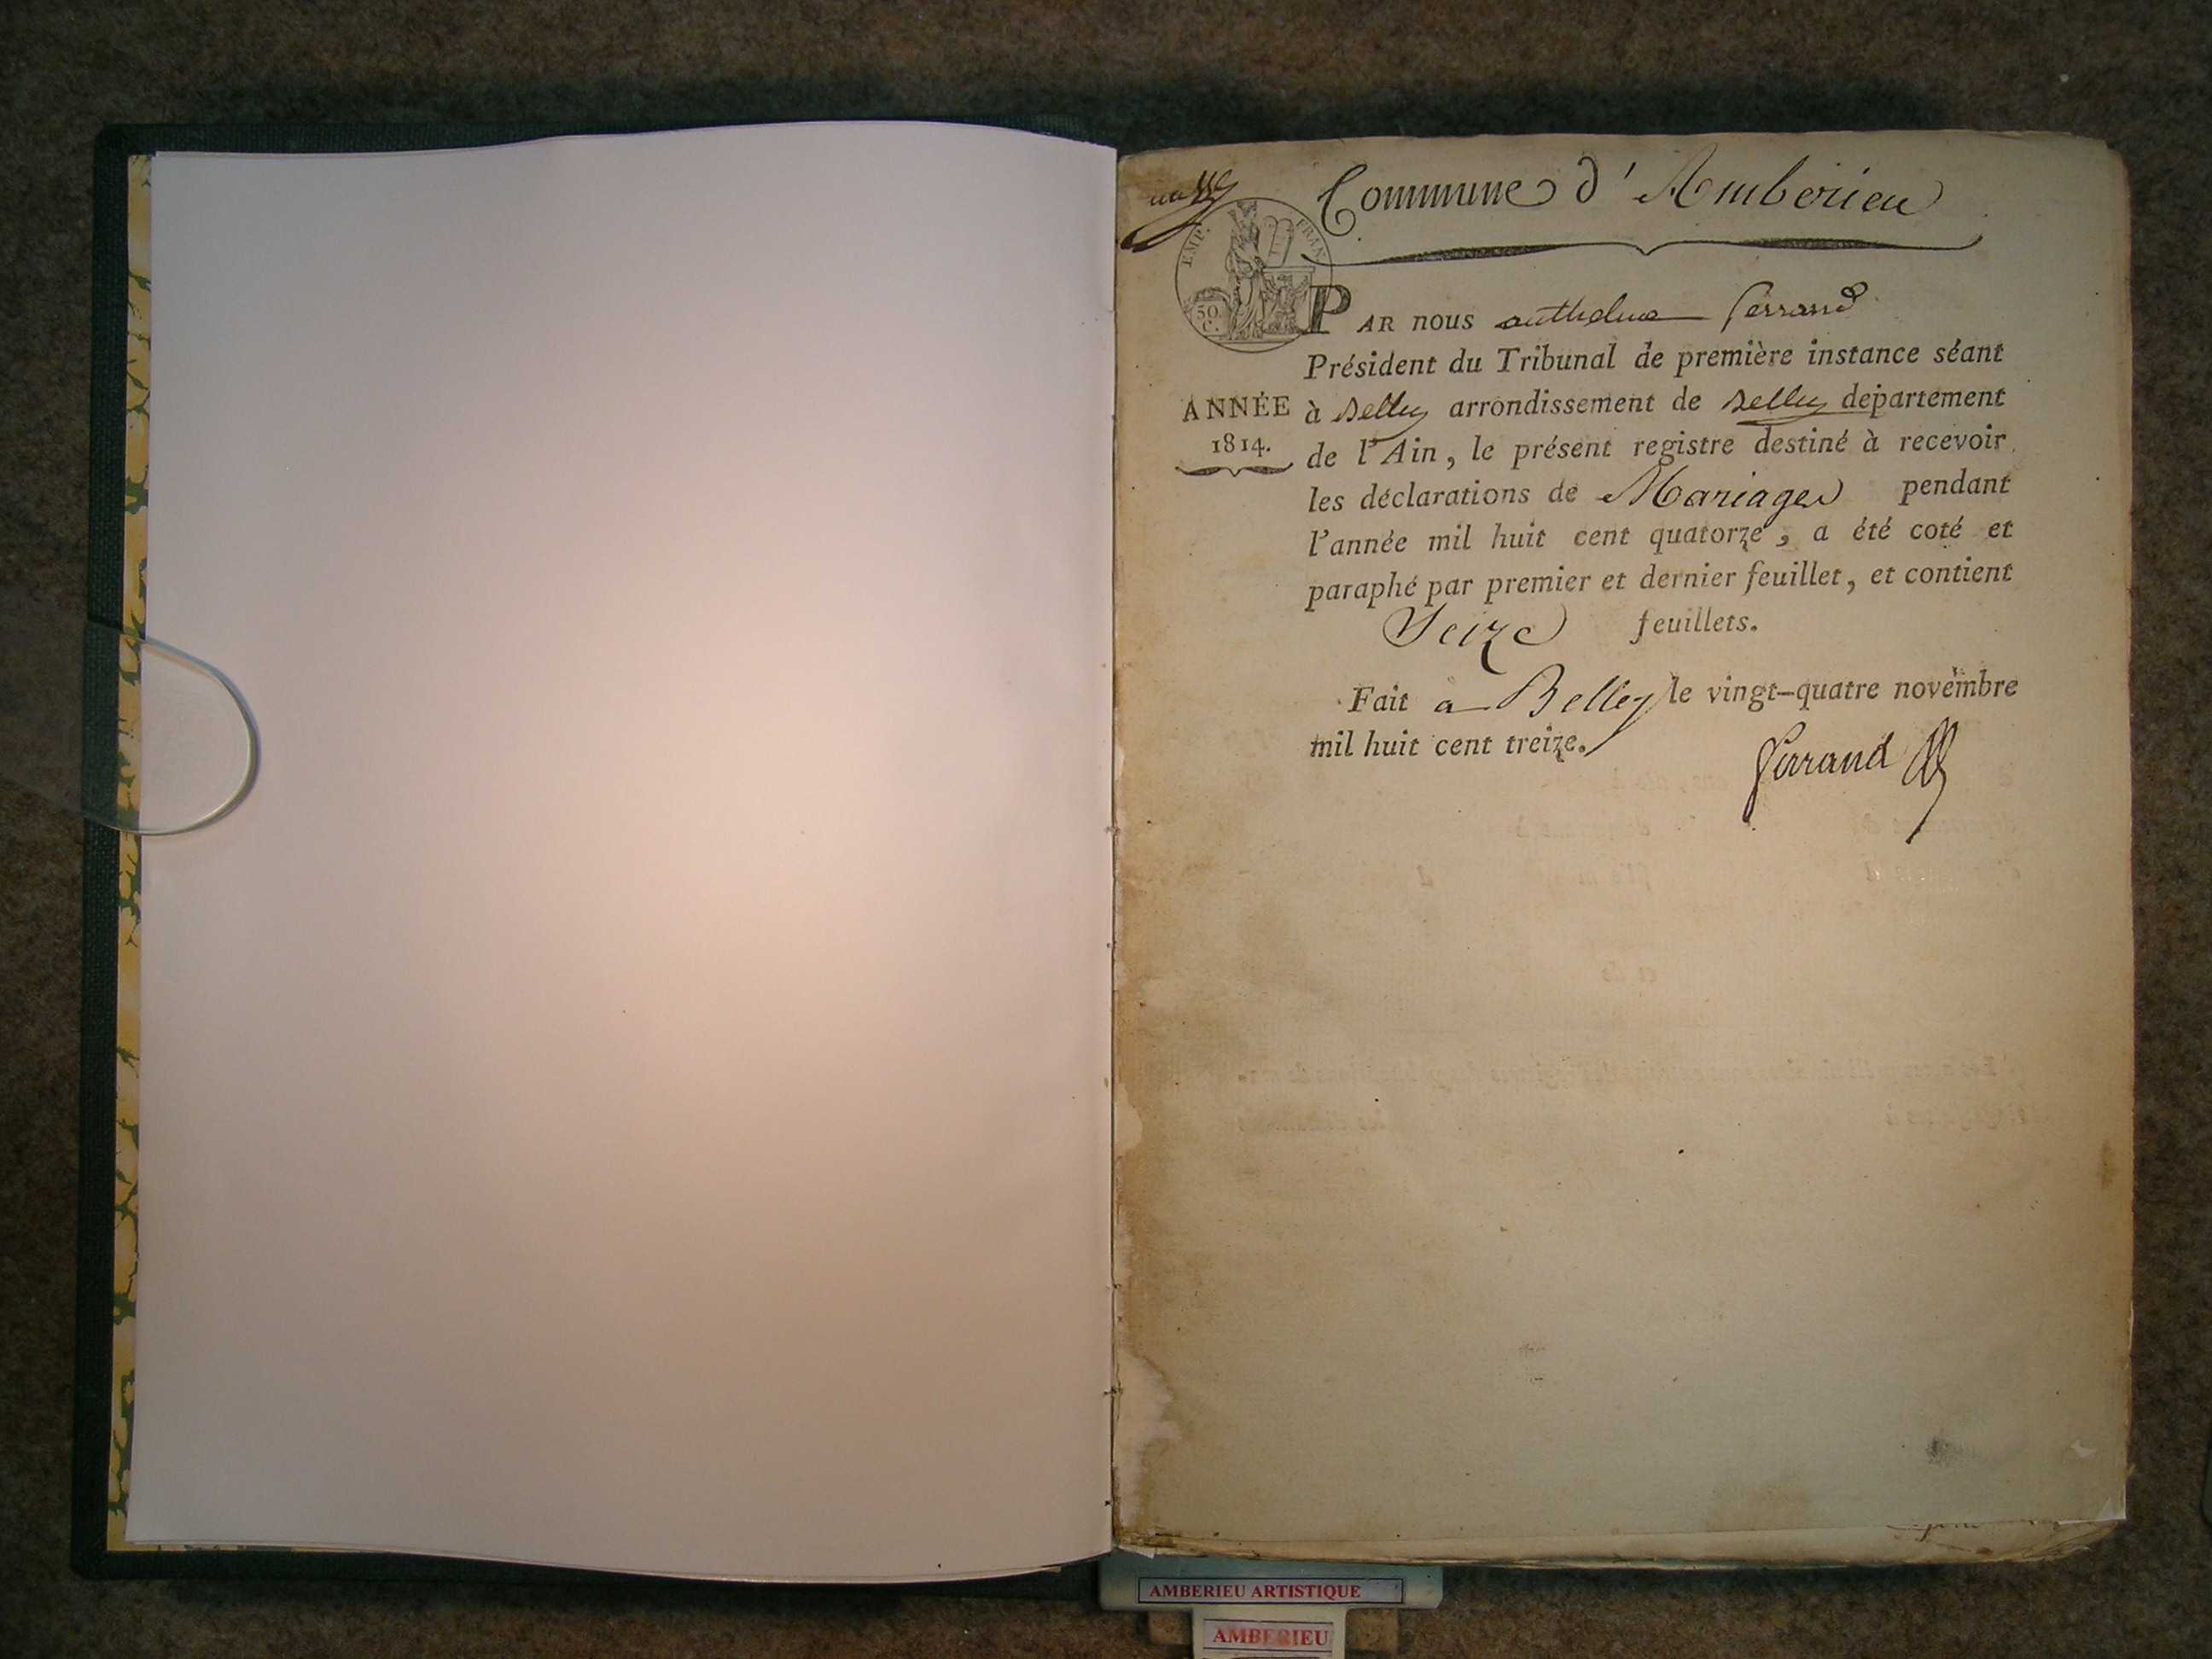 Commune d'Amberieu
EMP. FRAN.
50.
C.
PAR nous anthelme ferrand
Président du Tribunal de première instance séant
ANNÉE
1814.
à Belley arrondissement de Belley departement
de l'Ain, le présent registre destiné à recevoir
les déclarations de Mariages pendant
l'année mil huit cent quatorze, a été coté et
paraphé par premier et dernier feuillet, et contient
Seize feuillets.
Fait a Belley le vingt-quatre novembre
mil huit cent treize.
ferrand
AMBERIEU ARTISTIQUE
AMBERIEU